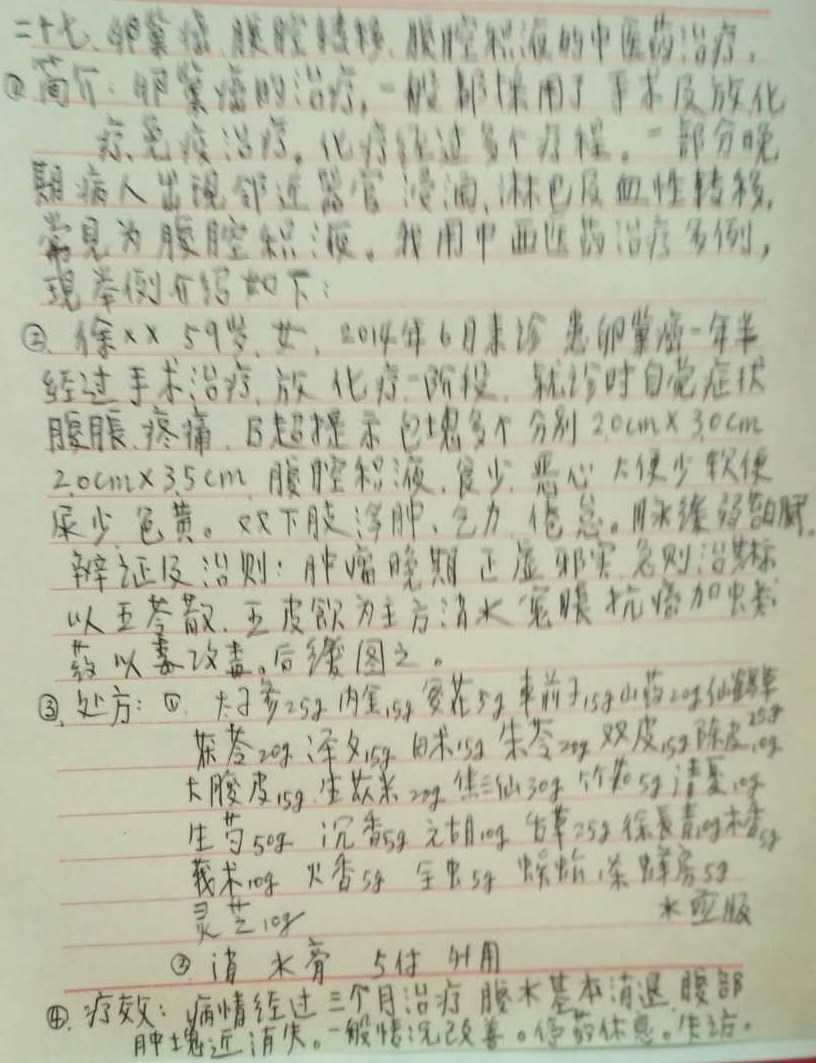 二十七、卵巢癌、腹腔转移、腹腔积液的中医药治疗.
① 简介:卵巢癌的治疗,一般都採用了手术及放、化
疗、免疫治疗。化疗经过多个疗程。一部分晚
期病人出现邻近器官浸润、淋巴及血性转移,
常见为腹腔积液。我用中西医药治疗多例,
现举例介绍如下:
②. 徐×× 59岁、女, 2014年6月来诊 患卵巢癌一年半
经过手术治疗、放化疗一阶段、就诊时自觉症状
腹胀、疼痛、B超提示包块多个分别2.0cm×3.0cm
2.0cm×3.5cm 腹腔积液、食少、恶心 大便少软便
尿少 色黄。双下肢浮肿、乏力、倦怠。脉缓弱舌白腻.
辨证及治则:肿瘤晚期正虚邪实、急则治其标
以五苓散、五皮飲为主方消水宽膜抗癌加虫类
药以毒攻毒。后缓图之。
③. 处方:① 太子参25g 内金15g 蒌花5g 車前子15g 山药20g 仙鹤草25g
茯苓20g 泽夕15g 白术15g 朱苓20g 双皮15g 陈皮10g
大腹皮15g 生苡米20g 焦三仙30g 竹茹5g 清夏10g
生芍50g 沉香5g 元胡10g 甘草25g 徐長青10g 木香5g
莪术10g 火香5g 全虫5g 蜈蚣1条 蜂房5g
灵芝10g 水煎服
② 消水膏 5付 外用
④. 疗效:病情经过三个月治疗 腹水基本消退 腹部
肿块近消失。一般情况改善。停药休息。失访。